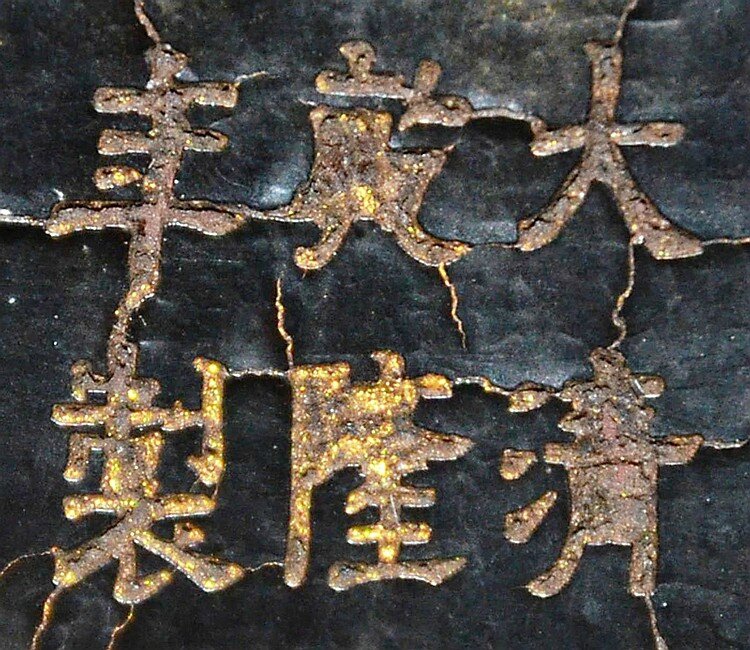 大清
隆
年製